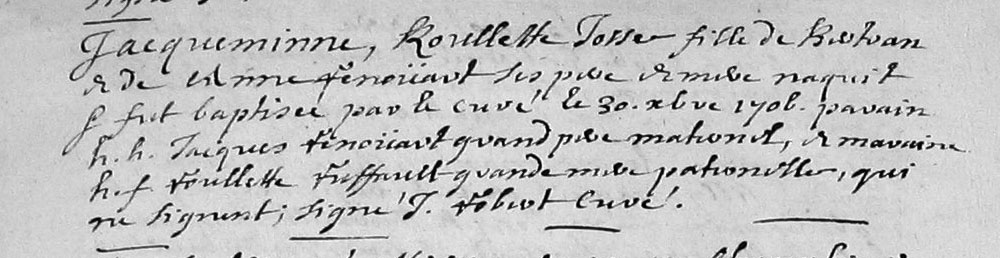 Jacqueminne, Roullette Josse fille de Bertran
& de Anne Renoüart ses pere & mere naquit
& fut baptisee par le curé le 30. xbre 1706. parain
h. h. Jacques Renoüart grand pere maternel, & maraine
h. f. Roullette Ruffault grande mere paternelle, qui
ne signent; signé J. Robert Curé.